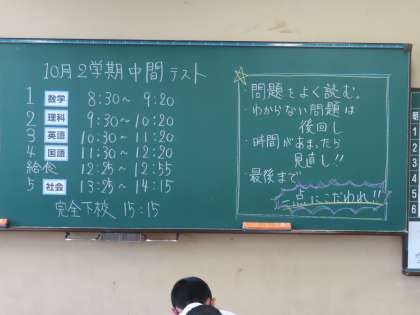 10月2学期中間テスト
1 数学 8:30〜 9:20
2 理科 9:30〜10:20
3 英語 10:30〜11:20
4 国語 11:30〜12:20
給食 12:25〜12:55
5 社会 13:25〜14:15
完全下校 15:15
・問題をよく読む。
・わからない問題は
後回し
・時間があまったら
見直し!!
・最後まで
一点にこだわれ!!
1
2
3
4
5
6